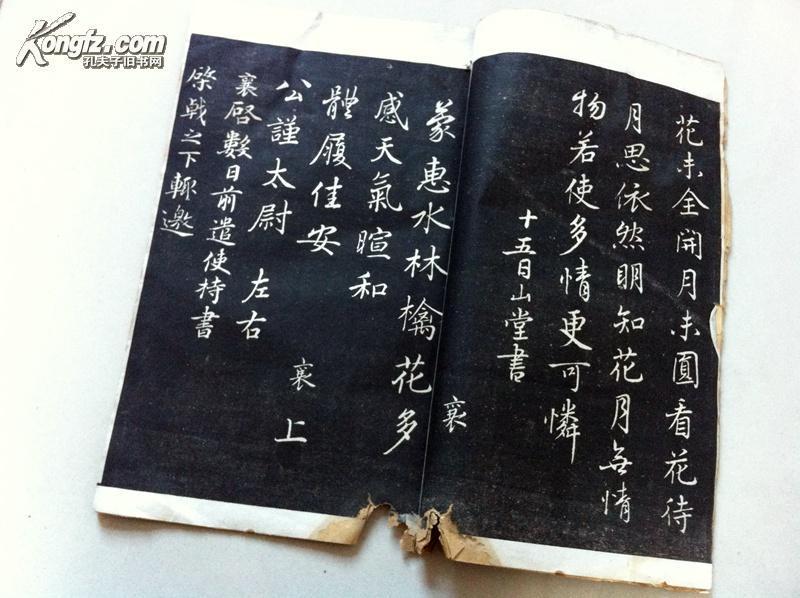 Kongfz.com
孔夫子旧书网
花未全開月未圓看花待
月思依然明知花月無情
物若使多情更可憐
十五日山堂書
襄
蒙惠水林檎花多
感天氣暄和
體履佳安
襄上
公謹太尉 左右
襄啓數日前遣使持書
棨戟之下輒邀